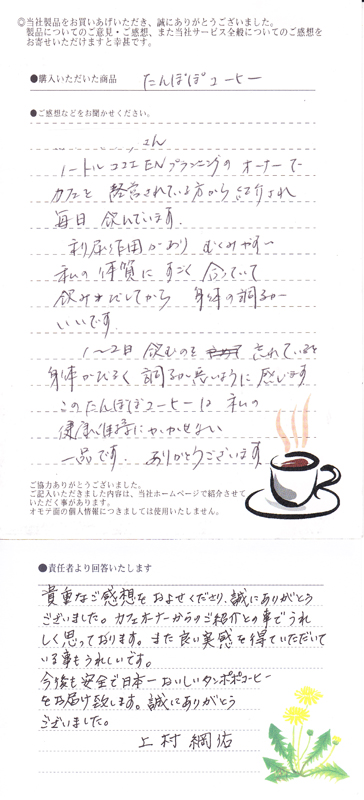 ◎当社製品をお買いあげいただき、誠にありがとうございました。
製品についてのご意見・ご感想、また当社サービス全般についてのご感想を
お寄せいただけますと幸甚です。
●購入いただいた商品
たんぽぽコーヒー
●ご感想などをお聞かせください。
さん
ノートル ココエ ENプランニングの オーナーで
カフェを 経営されている方から 紹介され
毎日 飲んでいます。
利尿作用があり むくみやすい
私の体質に すごく 合っていて
飲み出してから 身体の調子が
いいです。
1〜2日 飲むのを 忘れていると
身体がひるく 調子が悪いように感じます
このたんぽぽコーヒーは 私の
健康維持にかかせない
一品です。 ありがとうございます
ご協力ありがとうございました。
ご記入いただきました内容は、当社ホームページで紹介させて
いただく事があります。
オモテ面の個人情報につきましては使用いたしません。
●責任者より回答いたします
貴重なご感想をおよせくださり、誠にありがとう
ございました。カフェオーナーからのご紹介との事でうれ
しく思っております。また良い実感を得ていただいて
いる事もうれしいです。
今後も安全で日本一おいしいタンポポコーヒー
をお届け致します。誠にありがとう
ございました。
上村 綱佑